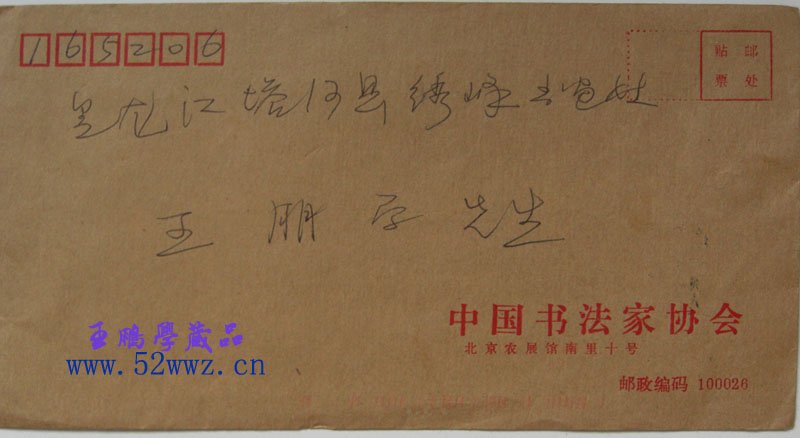 165206
贴 邮
票 处
黑龙江塔河县绣峰
王朋学先生
王鵬學藏品
www.52wwz.cn
中国书法家协会
北京农展馆南里十号
邮政编码 100026